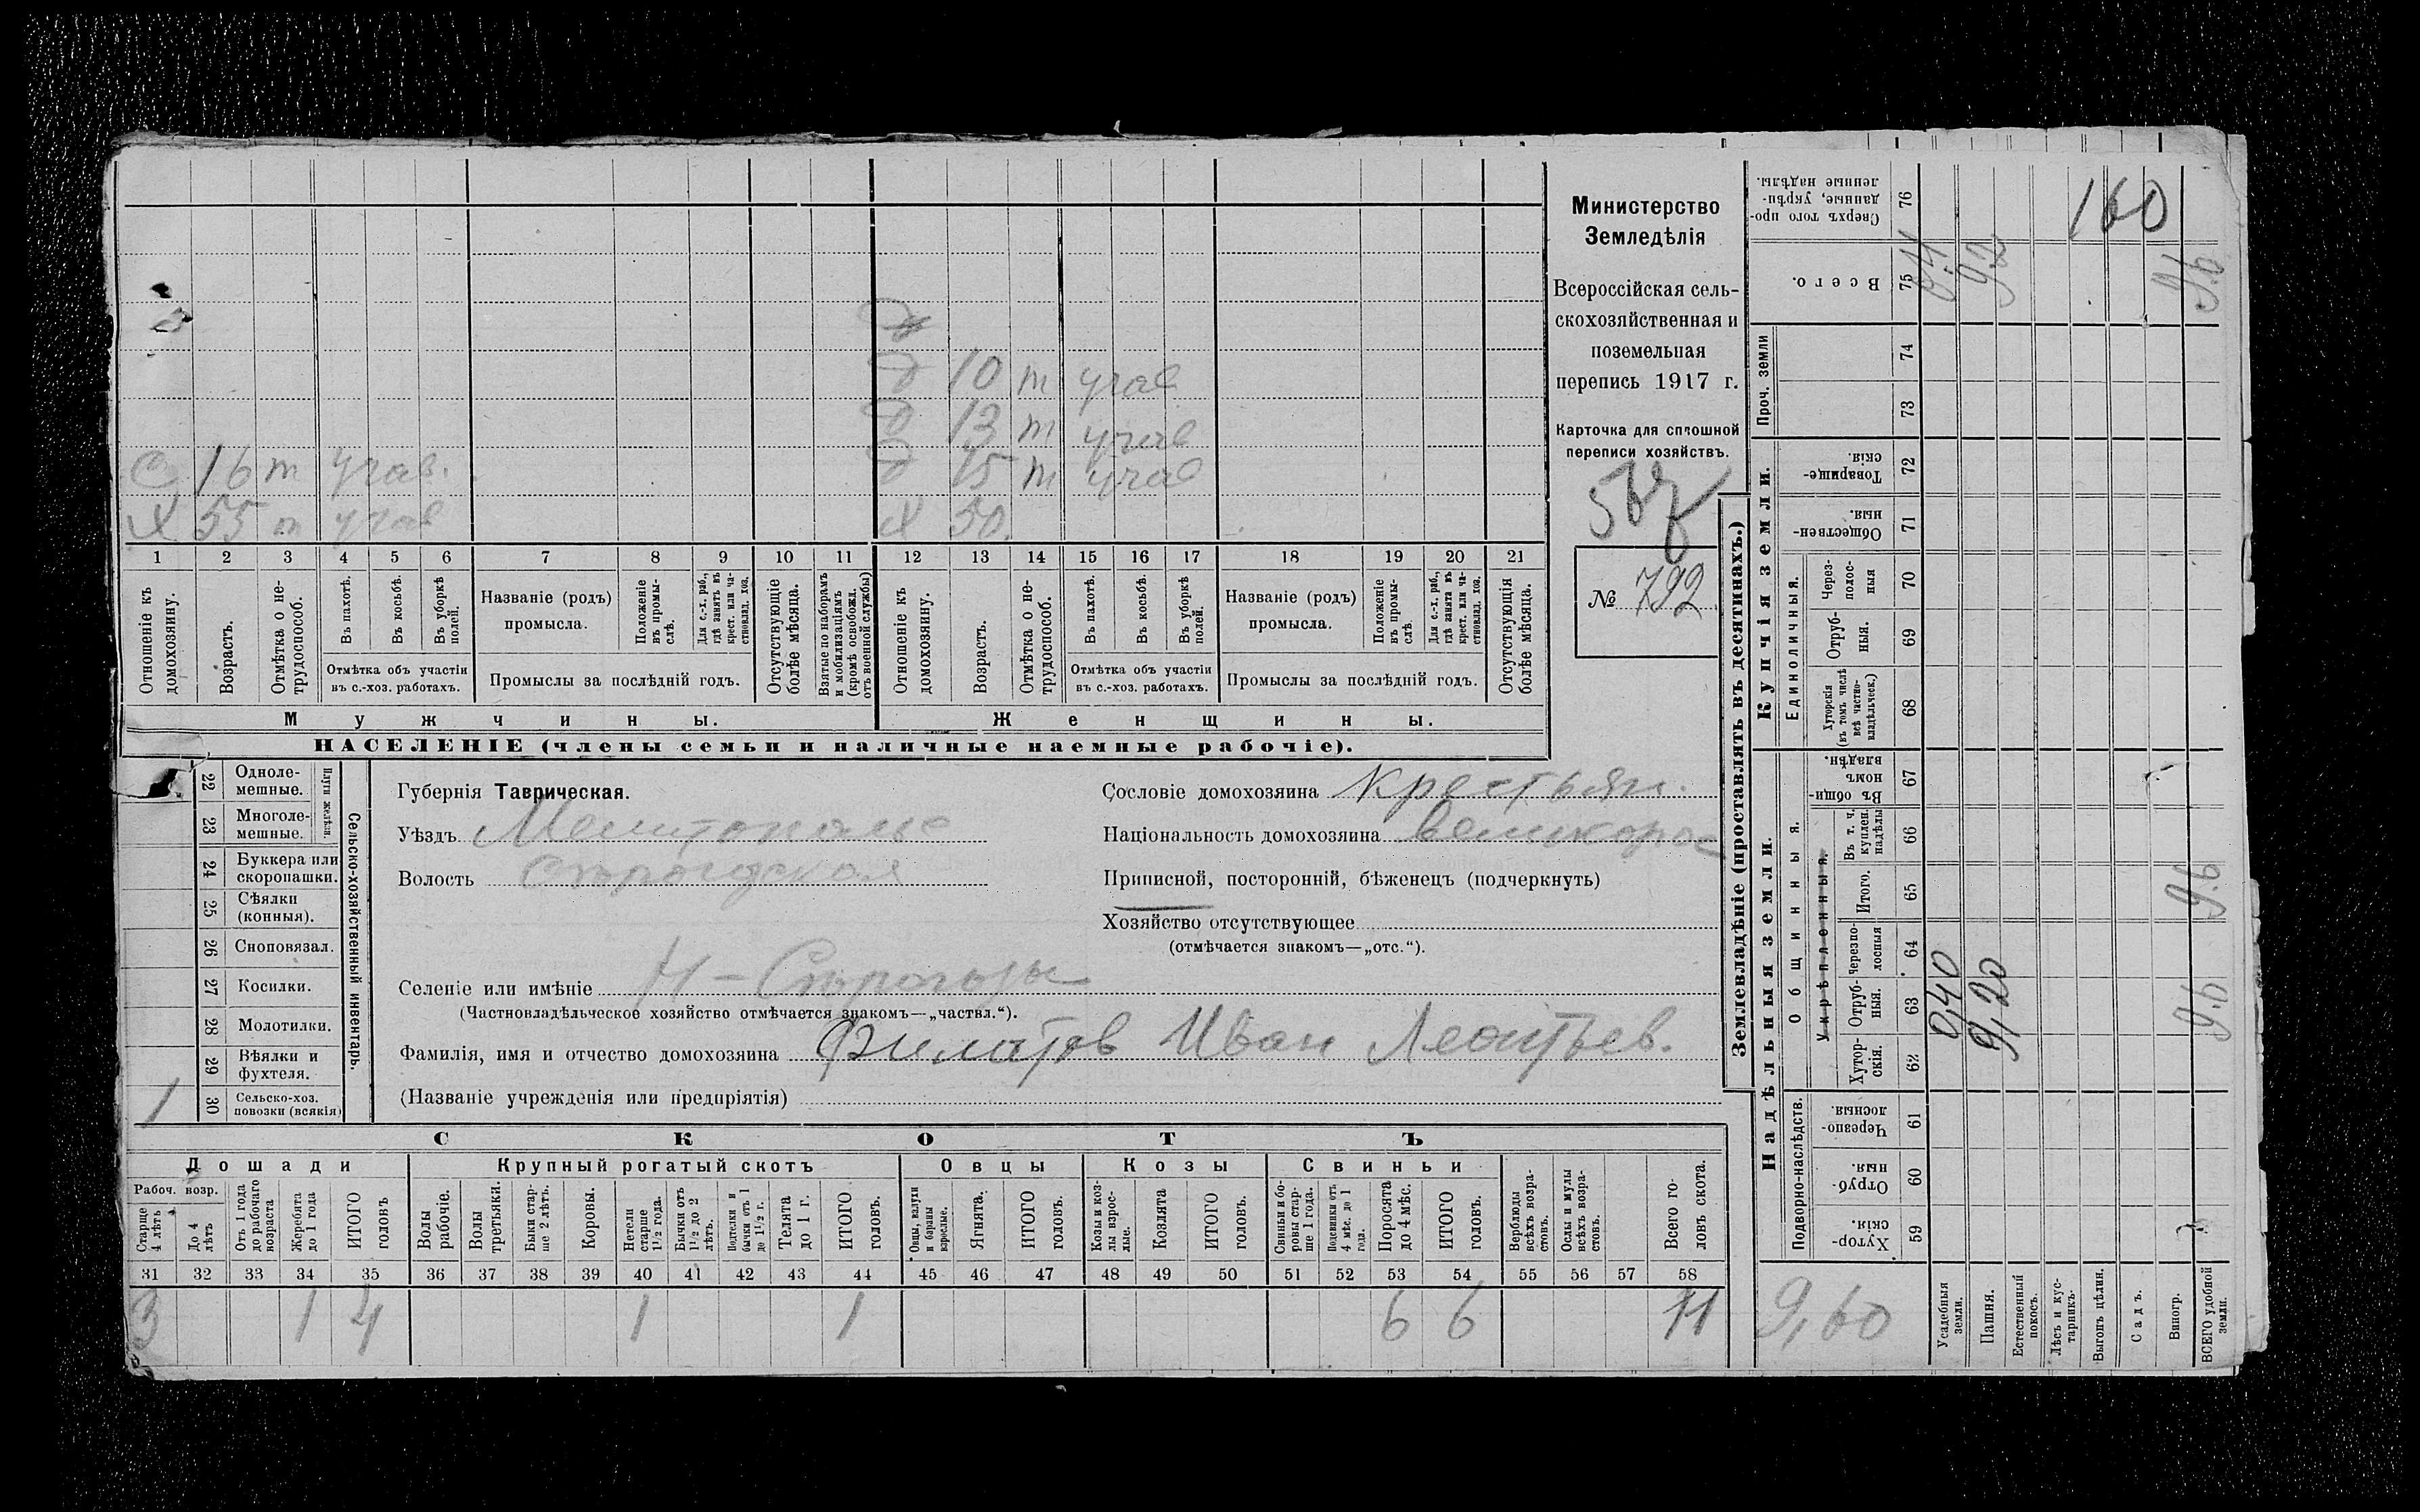 Министерство
Земледѣлія
Всероссійская сель-
скохозяйственная и
поземельная
перепись 1917 г.
Карточка для сплошной
переписи хозяйствъ.
№ 792
10 т учав
13 т учав
С 16 т учав.
15 т учав
Х 55 т учав
Х 50.
1 2 3 4 5 6 7 8 9 10 11 12 13 14 15 16 17 18 19 20 21
Отношеніе къ домохозяину.
Возрастъ.
Отмѣтка о не-трудоспособ.
Въ пахотѣ.
Въ косьбѣ.
Въ уборкѣ полей.
Отмѣтка объ участіи
въ с.-хоз. работахъ.
Названіе (родъ)
промысла.
Положеніе въ промы-слѣ.
Для с.-х. раб., гдѣ занятъ въ крест. или ча-стновлад. хоз.
Промыслы за послѣдній годъ.
Отсутствующіе болѣе мѣсяца.
Взятые по наборамъ и мобилизаціямъ (кромѣ освобожд. отъ военной службы)
Отношеніе къ домохозяину.
Возрастъ.
Отмѣтка о не-трудоспособ.
Въ пахотѣ.
Въ косьбѣ.
Въ уборкѣ полей.
Отмѣтка объ участіи
въ с.-хоз. работахъ.
Названіе (родъ)
промысла.
Положеніе въ промы-слѣ.
Для с.-х. раб., гдѣ занята въ крест. или ча-стновлад. хоз.
Промыслы за послѣдній годъ.
Отсутствующія болѣе мѣсяца.
Мужчины.
Женщины.
НАСЕЛЕНІЕ (члены семьи и наличные наемные рабочіе).
Сельско-хозяйственный инвентарь.
22 Одноле-мешные.
23 Многоле-мешные.
24 Буккера или скоропашки.
25 Сѣялки (конныя).
26 Сноповязал.
27 Косилки.
28 Молотилки.
29 Вѣялки и фухтеля.
1 30 Сельско-хоз. повозки (всякія)
Губернія Таврическая.
Уѣздъ Мелитополье
Волость Строгодская
Селеніе или имѣніе Н-Строгозы
(Частновладѣльческое хозяйство отмѣчается знакомъ—„частвл.“).
Фамилія, имя и отчество домохозяина Филатов Иван Леонтьев.
(Названіе учрежденія или предпріятія)
Сословіе домохозяина крестьян.
Національность домохозяина великорос
Приписной, посторонній, бѣженецъ (подчеркнуть)
Хозяйство отсутствующее
(отмѣчается знакомъ—„отс.“).
СКОТЪ
Лошади
Крупный рогатый скотъ
Овцы
Козы
Свиньи
Рабоч. возр.
Старше 4 лѣтъ
До 4 лѣтъ
Отъ 1 года до рабочаго возраста
Жеребята до 1 года
ИТОГО головъ
Волы рабочіе.
Волы третьяки.
Быки стар-ше 2 лѣтъ.
Коровы.
Нетели старше 1½ года.
Бычки отъ 1½ до 2 лѣтъ.
Подтелки и бычки отъ 1 до 1½ г.
Телята до 1 г.
ИТОГО головъ.
Овцы, валухи и бараны взрослые.
Ягнята.
ИТОГО головъ.
Козы и коз-лы взрос-лые.
Козлята
ИТОГО головъ.
Свиньи и бо-ровы стар-ше 1 года.
Подсвинки отъ 4 мѣс. до 1 года.
Поросята до 4 мѣс.
ИТОГО головъ.
Верблюды всѣхъ возра-стовъ.
Ослы и мулы всѣхъ возра-стовъ.
Всего го-ловъ скота.
31 32 33 34 35 36 37 38 39 40 41 42 43 44 45 46 47 48 49 50 51 52 53 54 55 56 57 58
3 1 4 1 1 6 6 11
Землевладѣніе (проставлять въ десятинахъ.)
Надѣльныя земли.
Купчія земли.
Проч. земли
Подворно-наслѣдств.
Общинныя.
Укрѣпленныя.
Единоличныя.
Сверхъ того про-данные, укрѣп-ленные надѣлы. 76
Всего. 75
74
73
Товарище-скія. 72
Обществен-ныя. 71
Через-полос-ныя 70
Отруб-ныя. 69
Хуторскія (въ томъ числѣ всѣ частно-владѣльческ.) 68
Въ общин-номъ владѣн. 67
Въ т. ч. куплен. надѣлы 66
Итого. 65
Черезпо-лосныя 64
Отруб-ныя. 63
Хутор-скія. 62
Черезпо-лосныя. 61
Отруб-ныя. 60
Хутор-скія. 59
160
9.2
9.6
9.6
9.6
0,40
9,20
9,60
Усадебныя земли.
Пашня.
Естественный покосъ.
Лѣсъ и кус-тарникъ.
Выгонъ цѣлин.
Садъ.
Виногр.
ВСЕГО удобной земли.